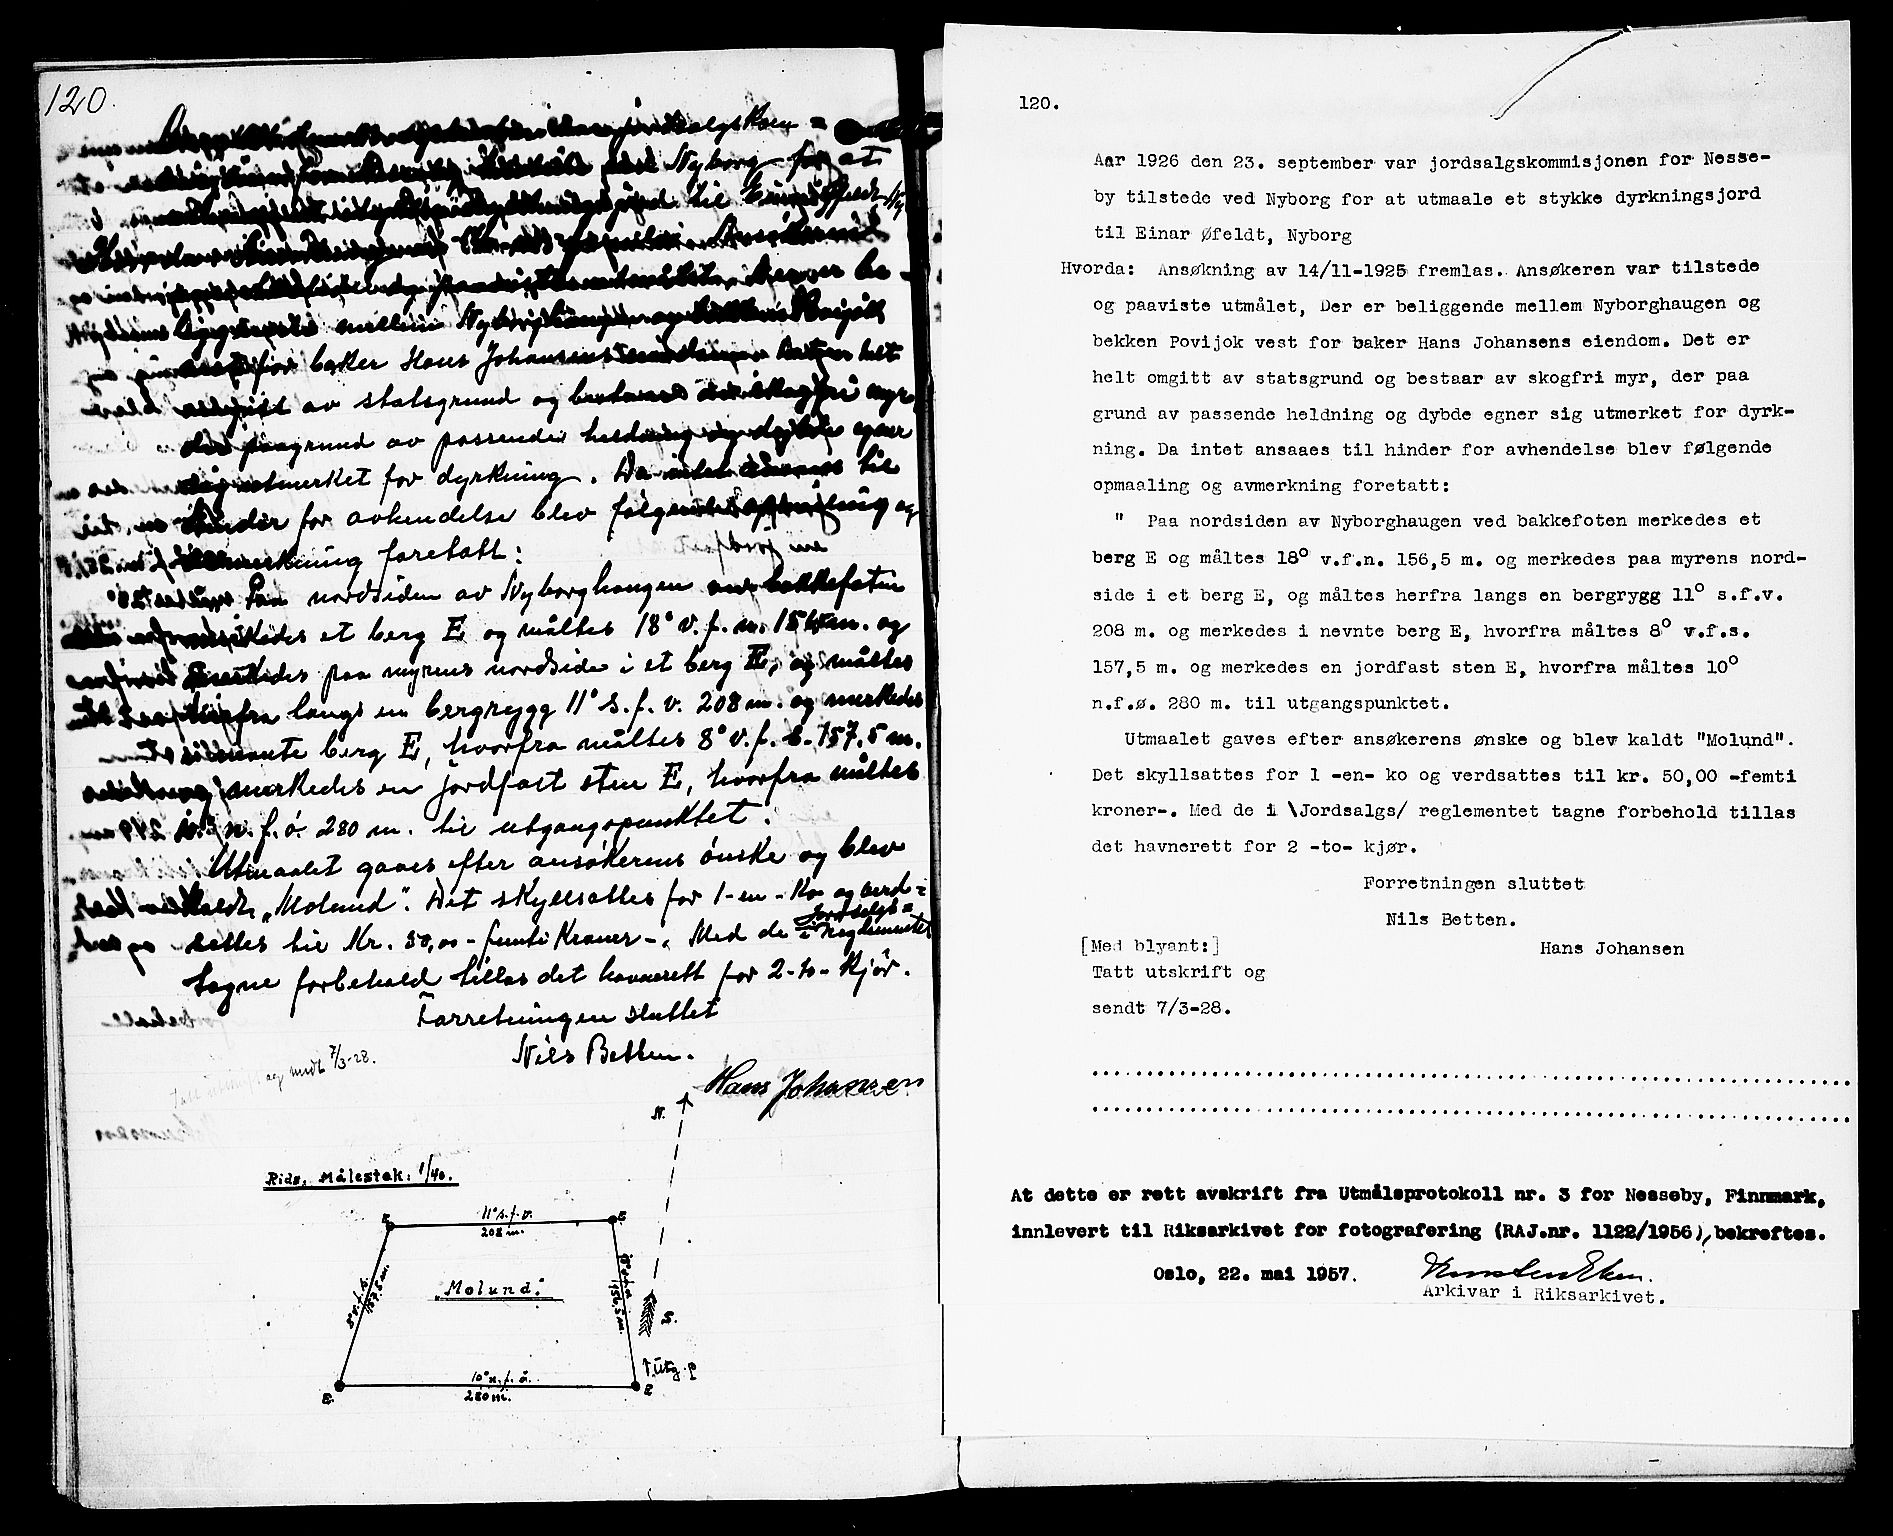 120.
jordsalgskom=
Nyborg for at
til Einar Øfeldt,
mellem Nyborghaugen og bekken Povijok
vest for baker Hans Johansens eiendom. Det er helt
omgitt av statsgrund og bestaar av skogfri myr,
der paa grund av passende heldning og dybde egner
sig utmerket for dyrkning. Da intet ansaaes til
hinder for avhendelse blev følgende opmaaling og
avmerkning foretatt:
" Paa nordsiden av Nyborghaugen ved bakkefoten
merkedes et berg E og måltes 18° v.f.n. 156,5 m. og
merkedes paa myrens nordside i et berg E, og måltes
herfra langs en bergrygg 11° s.f.v. 208 m. og merkedes
i nevnte berg E, hvorfra måltes 8° v.f.s. 157,5 m.
og merkedes en jordfast sten E, hvorfra måltes
10° n.f.ø. 280 m. til utgangspunktet.
Utmaalet gaves efter ansøkerens ønske og blev
kaldt „Molund". Det skyllsattes for 1-en- ko og verd=
sattes til kr. 50,00 -femti kroner-. Med de i Jordsalgs= reglementet
tagne forbehold tillas det havnerett for 2-to- kjør.
Forretningen sluttet
Nils Betten.
Hans Johansen
Tatt utskrift og sendt 7/3-28.
N.
Rids, Målestok: 1/40.
E
11° s.f.v.
208 m.
E
8° v.f.s.
157,5 m.
„Molund".
18° v.f.n.
156,5 m.
S.
Utg. p
E.
10° n.f.ø.
280 m.
E
120.
Aar 1926 den 23. september var jordsalgskommisjonen for Nesse-
by tilstede ved Nyborg for at utmaale et stykke dyrkningsjord
til Einar Øfeldt, Nyborg
Hvorda: Ansøkning av 14/11-1925 fremlas. Ansøkeren var tilstede
og paaviste utmålet, Der er beliggende mellem Nyborghaugen og
bekken Povijok vest for baker Hans Johansens eiendom. Det er
helt omgitt av statsgrund og bestaar av skogfri myr, der paa
grund av passende heldning og dybde egner sig utmerket for dyrk-
ning. Da intet ansaaes til hinder for avhendelse blev følgende
opmaaling og avmerkning foretatt:
" Paa nordsiden av Nyborghaugen ved bakkefoten merkedes et
berg E og måltes 18° v.f.n. 156,5 m. og merkedes paa myrens nord-
side i et berg E, og måltes herfra langs en bergrygg 11° s.f.v.
208 m. og merkedes i nevnte berg E, hvorfra måltes 8° v.f.s.
157,5 m. og merkedes en jordfast sten E, hvorfra måltes 10°
n.f.ø. 280 m. til utgangspunktet.
Utmaalet gaves efter ansøkerens ønske og blev kaldt "Molund".
Det skyllsattes for 1 -en- ko og verdsattes til kr. 50,00 -femti
kroner-. Med de i \Jordsalgs/ reglementet tagne forbehold tillas
det havnerett for 2 -to- kjør.
Forretningen sluttet
Nils Betten.
[Med blyant:] Hans Johansen
Tatt utskrift og
sendt 7/3-28.
At dette er rett avskrift fra Utmålsprotokoll nr. 3 for Nesseby, Finnmark,
innlevert til Riksarkivet for fotografering (RAJ.nr. 1122/1956), bekreftes.
Oslo, 22. mai 1957.
Arkivar i Riksarkivet.